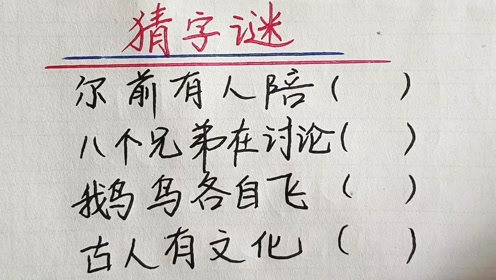 猜字谜
尔前有人陪（ ）
八个兄弟在讨论（ ）
鹅鸟鸟各自飞（ ）
古人有文化（ ）